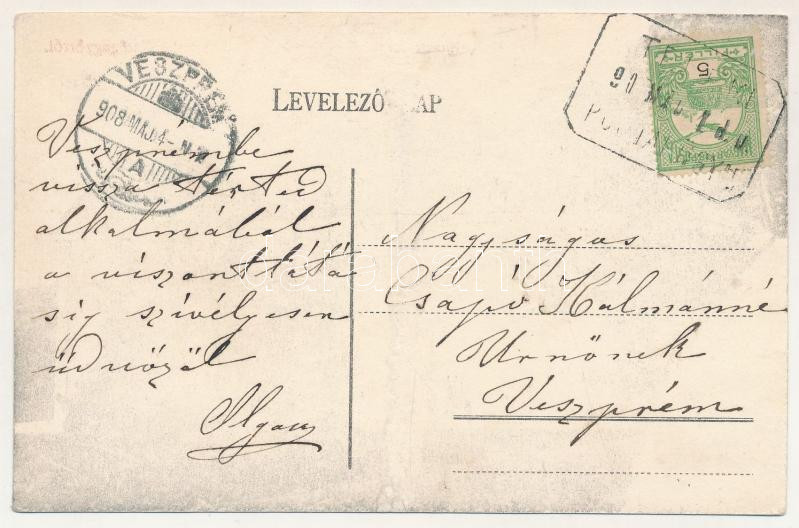 LEVELEZŐ LAP
VESZPRÉM
908 MÁJ. 4
A
5
FILLÉR
Veszprémbe
vissza térted
alkalmából
a viszont látá
sig szívélyesen
üdvözöl
Olga
Nagyságos
Csapó Kálmánné
Urnőnek
Veszprém
darabanth